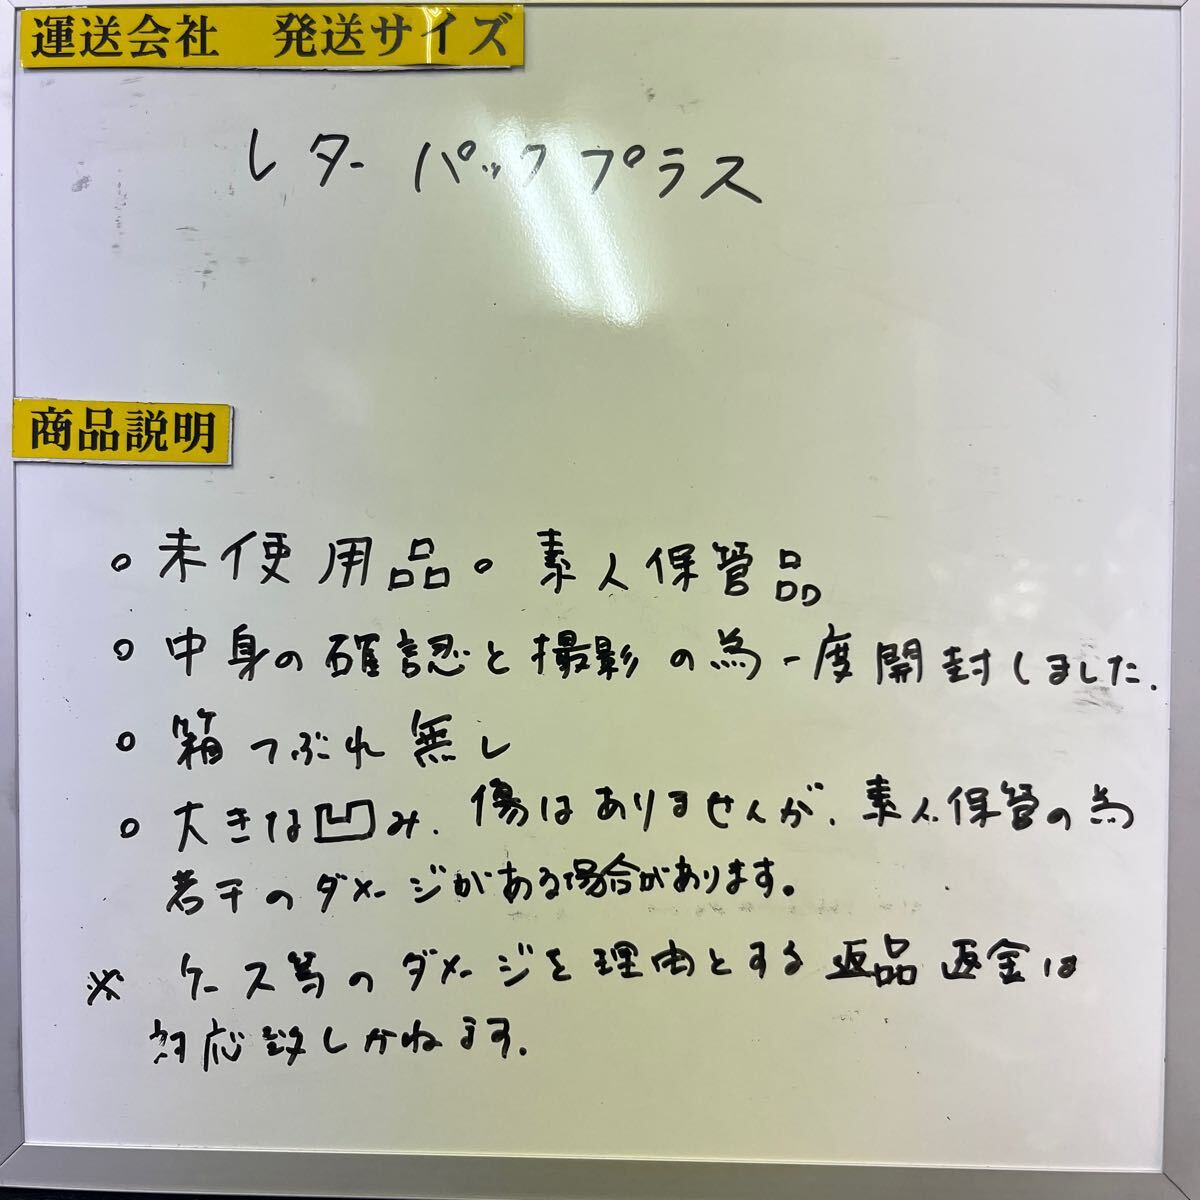 運送会社　発送サイズ
レターパックプラス
商品説明
○ 未使用品○ 素人保管品
○ 中身の確認と撮影の為一度開封しました.
○ 箱つぶれ無し
○ 大きな凹み.傷はありませんが.素人保管の為
若干のダメージがある場合があります。
※ ケース等のダメージを理由とする返品返金は
対応致しかねます.